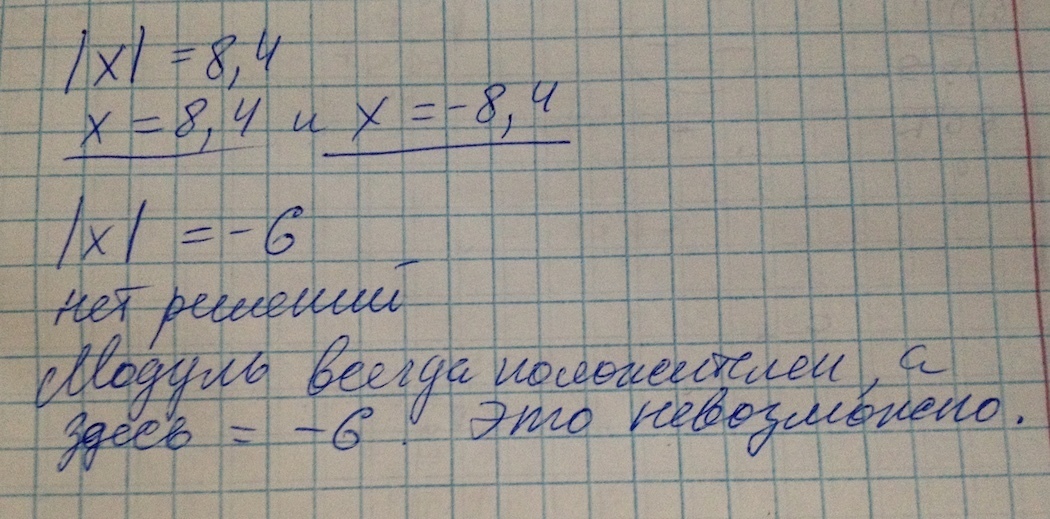 |x| = 8,4
x = 8,4 и x = -8,4
|x| = -6
нет решений
Модуль всегда положителен, а
здесь = -6. Это невозможно.